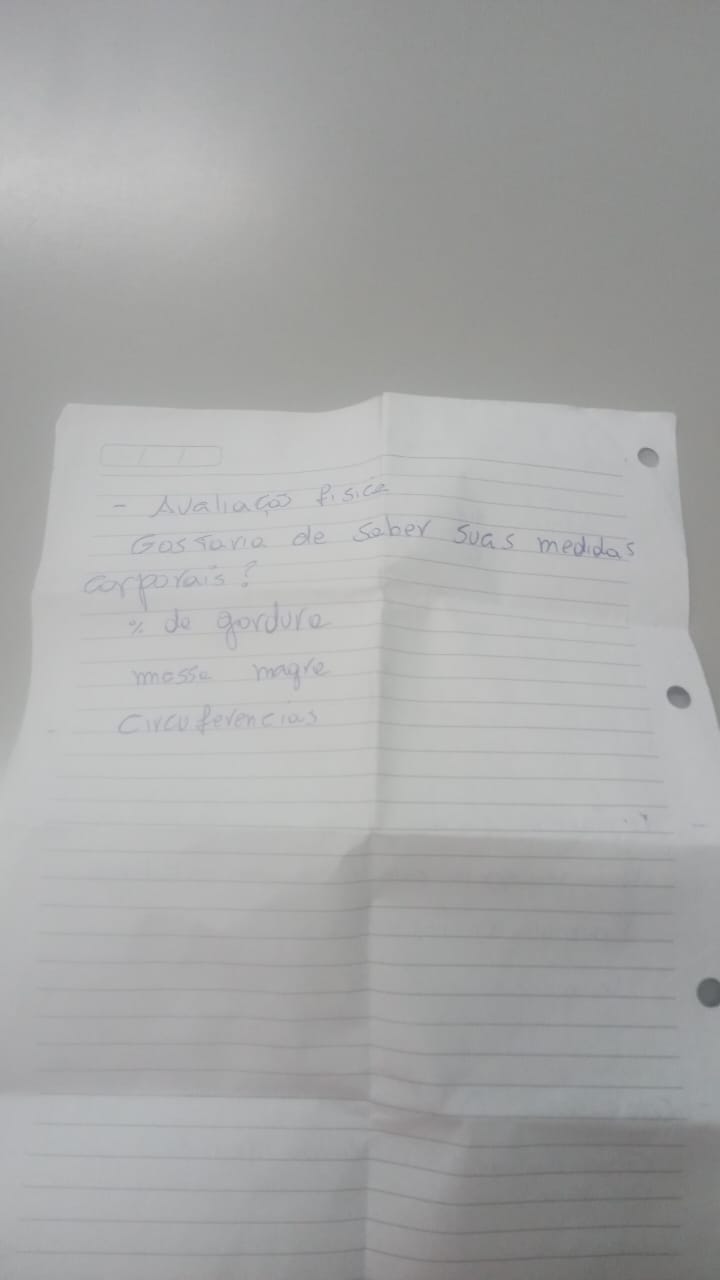 - Avaliação física
Gostaria de saber suas medidas
corporais?
% de gordura
massa magra
Circuferencias